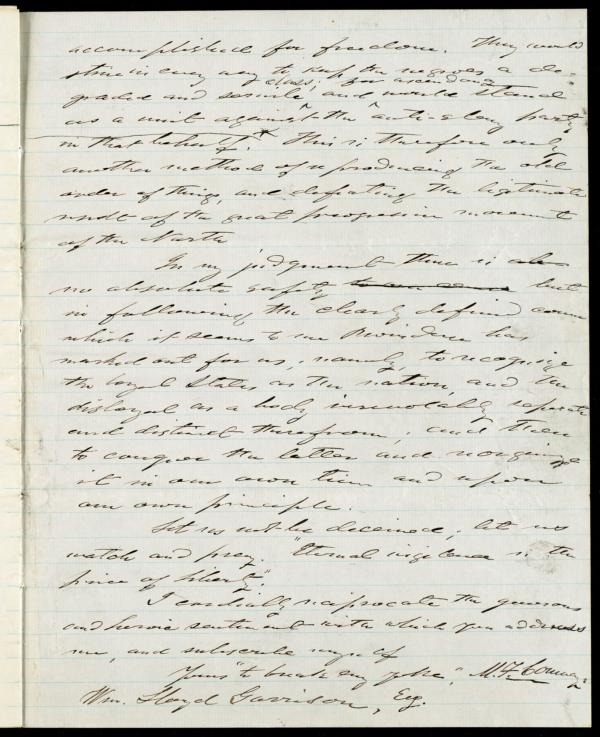 accomplished for freedom. They would
strive in every way to keep the negroes a de-
class; ascendancy
graded and servile and would stand
as a unit against the anti-slavery party
in that behalf. This is therefore only
another method of reproducing the old
order of things, and defeating the legitimate
result of the great progressive movement
of the North
In my judgment there is
no absolute safety but
in following the clearly defined course
which it seems to me Providence has
marked out for us, namely, to recognize
the loyal States as the nation, and the
disloyal as a body irrevocably separate
and distinct therefrom; and then
to conquer the latter and reorganize
it in our own time and upon
our own principle.
Let us not be deceived, let us
watch and pray. "Eternal vigilance is the
price of liberty".
I cordially reciprocate the generous
and heroic sentiment with which you address
me, and subscribe myself
Yours "to break every yoke," M. F. Conway.
Wm. Lloyd Garrison, Esq.